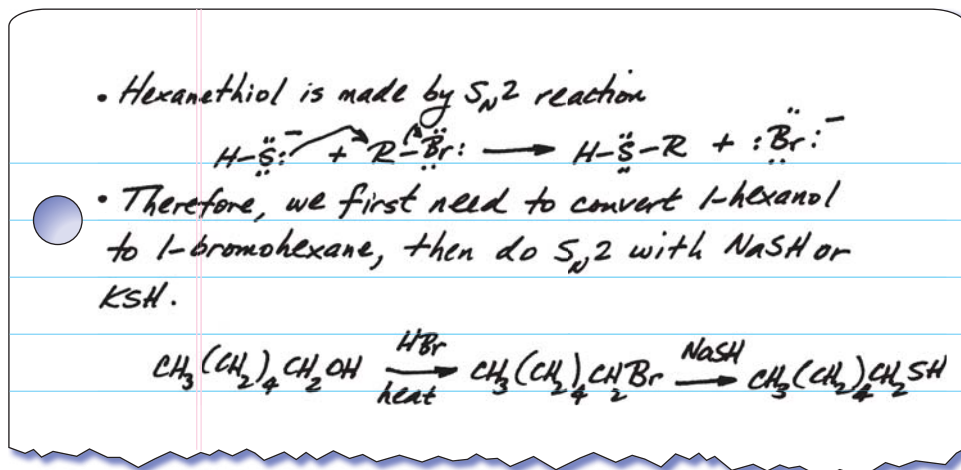 • Hexanethiol is made by SN2 reaction
H–S̈:⁻ + R–B̈r: ⟶ H–S̈–R + :B̈r:⁻
• Therefore, we first need to convert 1-hexanol
to 1-bromohexane, then do SN2 with NaSH or
KSH.
CH₃(CH₂)₄CH₂OH HBr ⟶ heat CH₃(CH₂)₄CH₂Br NaSH ⟶ CH₃(CH₂)₄CH₂SH